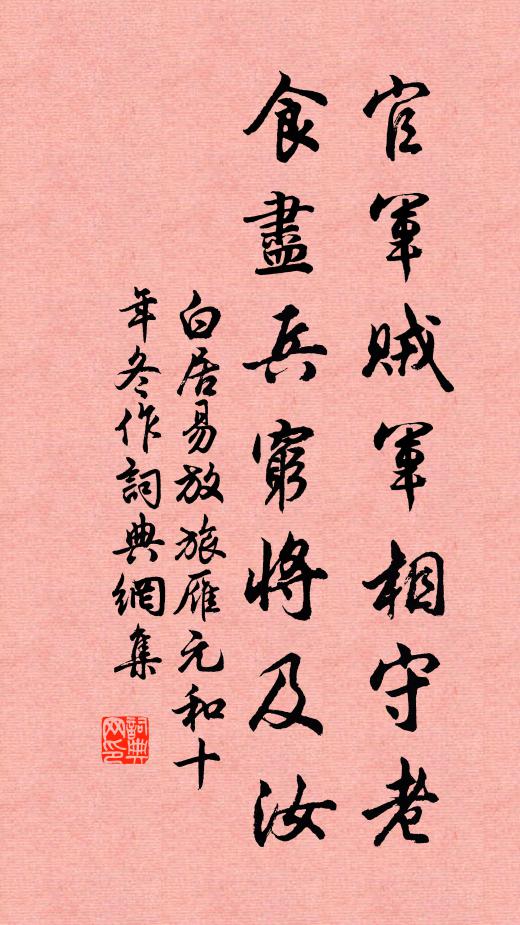 官軍賊軍相守老
食盡兵窮將及汝
白居易放旅雁元和十
年冬作詞典網集
詞典
网印